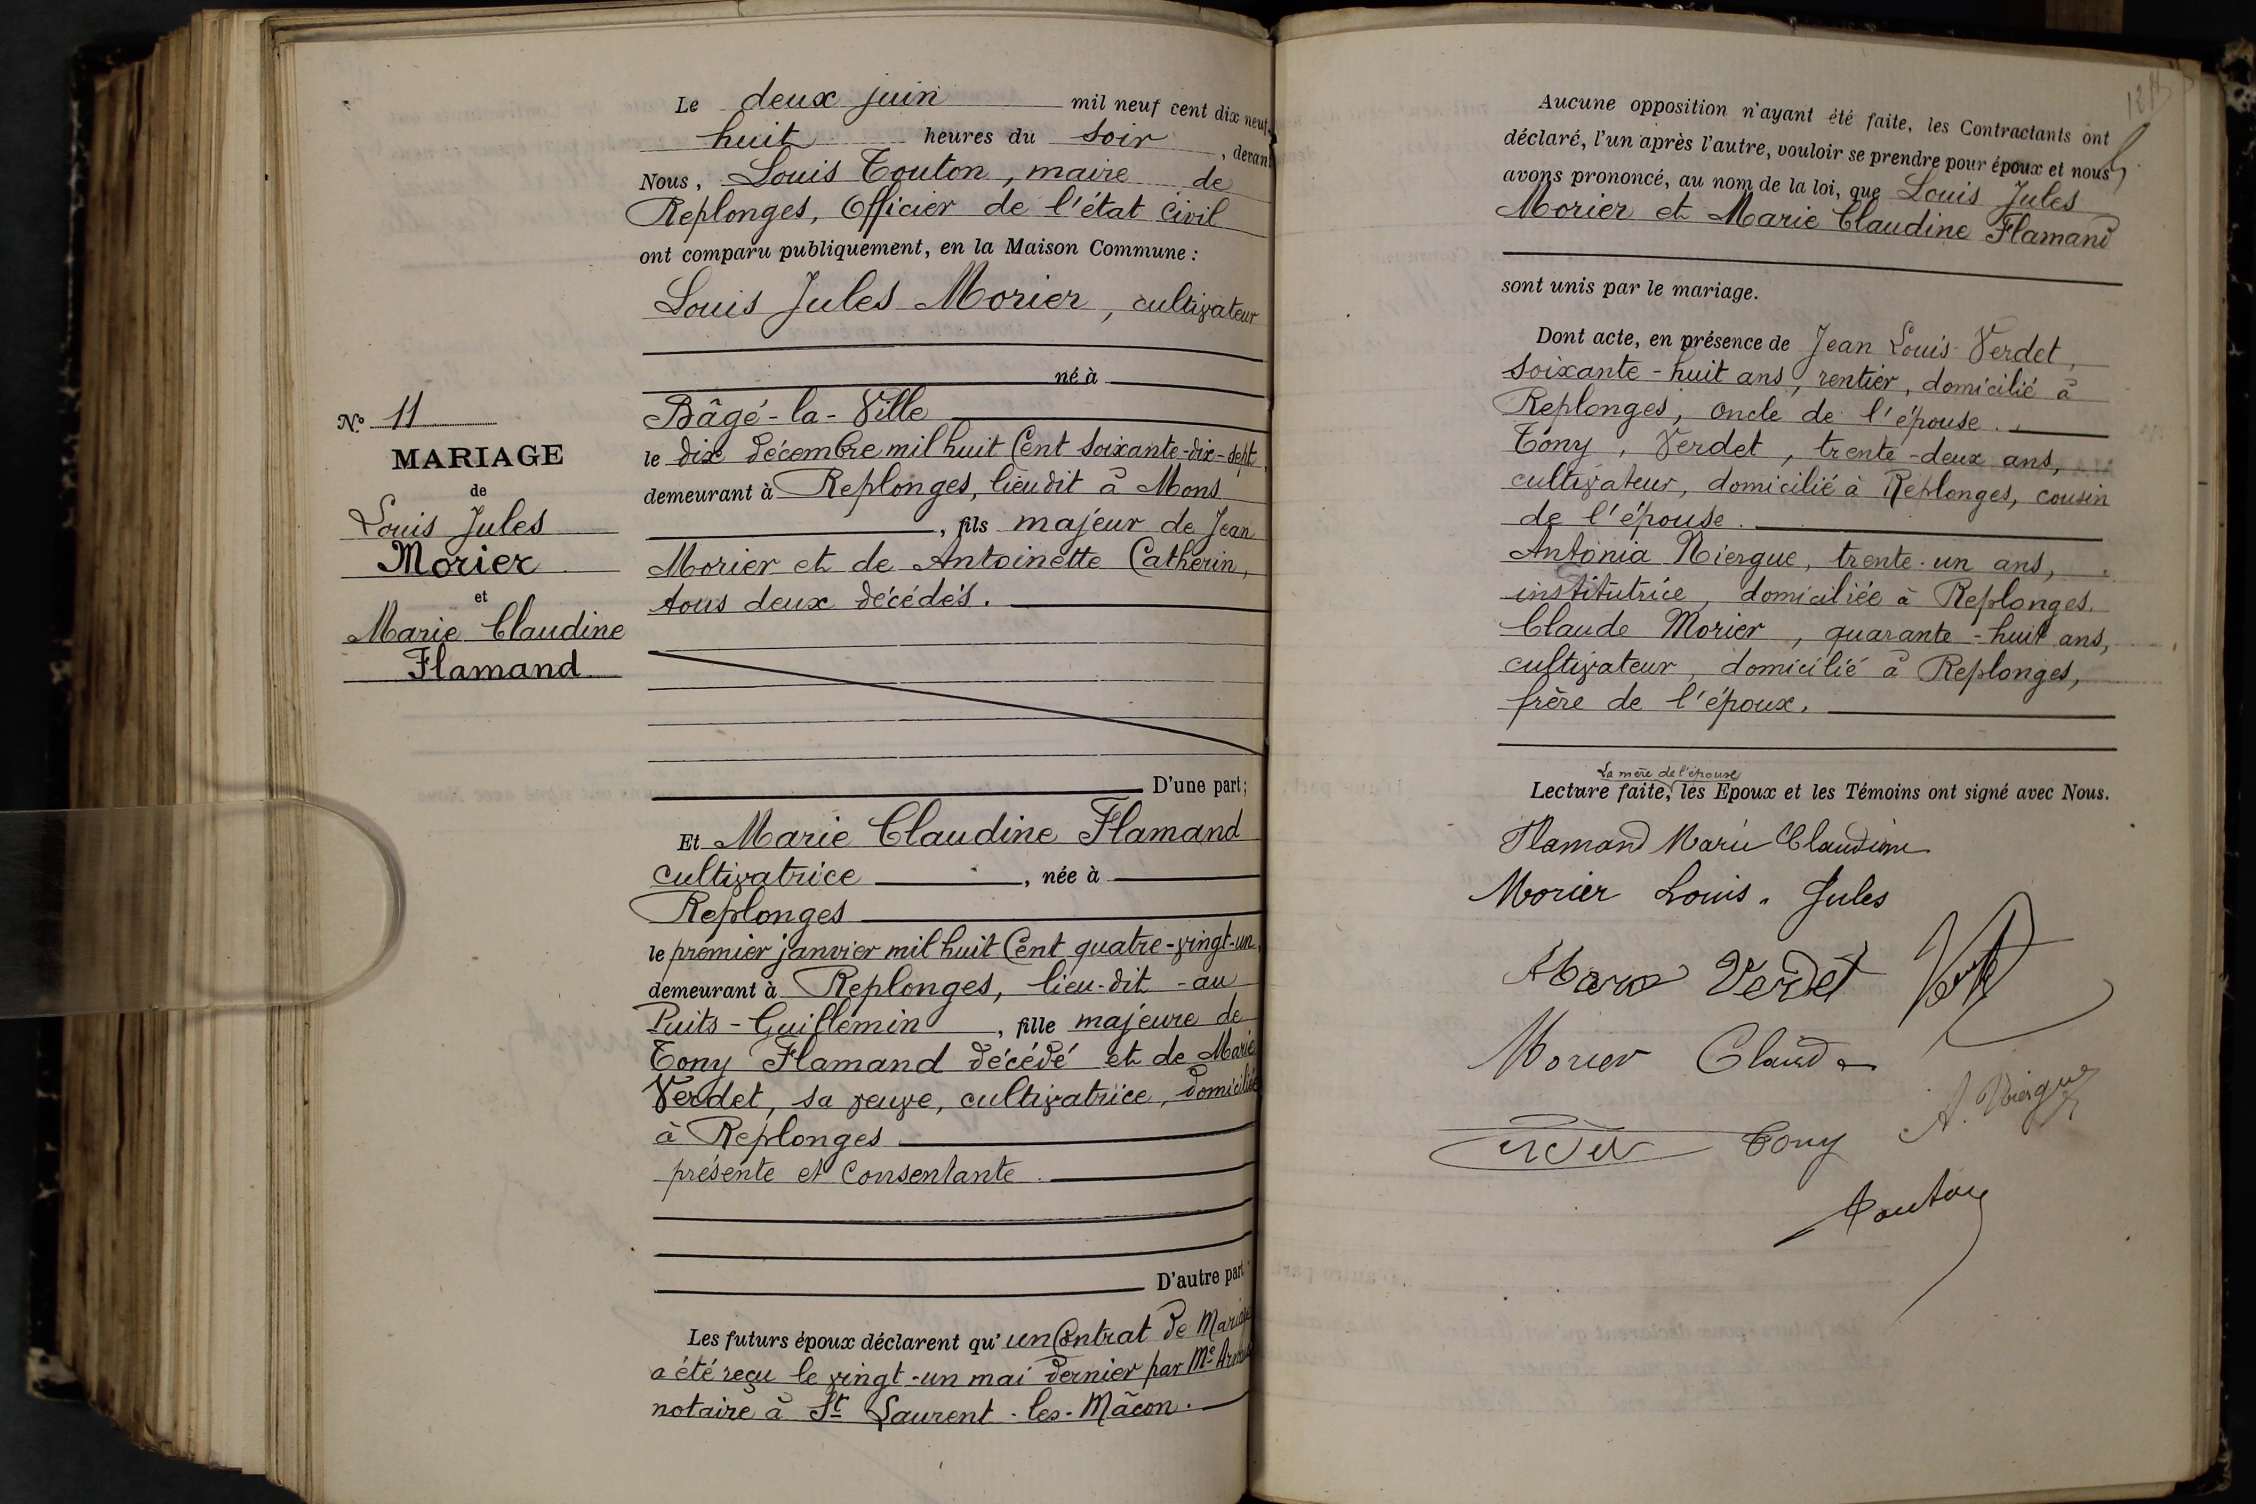 Le deux juin mil neuf cent dix neuf
huit heures du soir, devant
Nous, Louis Touton, maire de
Replonges, Officier de l'état Civil
ont comparu publiquement, en la Maison Commune :
Louis Jules Morier, cultivateur
né à
Bâgé-la-Ville
le dix décembre mil huit Cent soixante-dix-sept
demeurant à Replonges, lieudit à Mons
, fils majeur de Jean
Morier et de Antoinette Catherin,
tous deux décédés.
D'une part;
Et Marie Claudine Flamand
cultivatrice, née à
Replonges
le premier janvier mil huit Cent quatre-vingt-un
demeurant à Replonges, lieu-dit -au
Puits-Guillemin, fille majeure de
Tony Flamand décédé et de Marie
Verdet, sa veuve, cultivatrice, domiciliée
à Replonges
présente et Consentante.
D'autre part
Les futurs époux déclarent qu'un Contrat de Mariage
a été reçu le vingt-un mai dernier par Me
notaire à St Laurent-les-Mâcon.
No 11
MARIAGE
de
Louis Jules
Morier
et
Marie Claudine
Flamand
Aucune opposition n'ayant été faite, les Contractants ont
déclaré, l'un après l'autre, vouloir se prendre pour époux et nous
avons prononcé, au nom de la loi, que Louis Jules
Morier et Marie Claudine Flamand
sont unis par le mariage.
Dont acte, en présence de Jean Louis Verdet,
soixante-huit ans, rentier, domicilié à
Replonges, oncle de l'épouse.
Tony, Verdet, trente-deux ans,
cultivateur, domicilié à Replonges, cousin
de l'épouse.
Antonia Niergue, trente-un ans,
institutrice, domiciliée à Replonges.
Claude Morier, quarante-huit ans,
cultivateur, domicilié à Replonges,
frère de l'époux.
La mère de l'épouse
Lecture faite, les Epoux et les Témoins ont signé avec Nous.
Flamand Marie Claudine
Morier Louis. Jules
Verdet
Morier Claude
A. Niergue
Tony
Touton